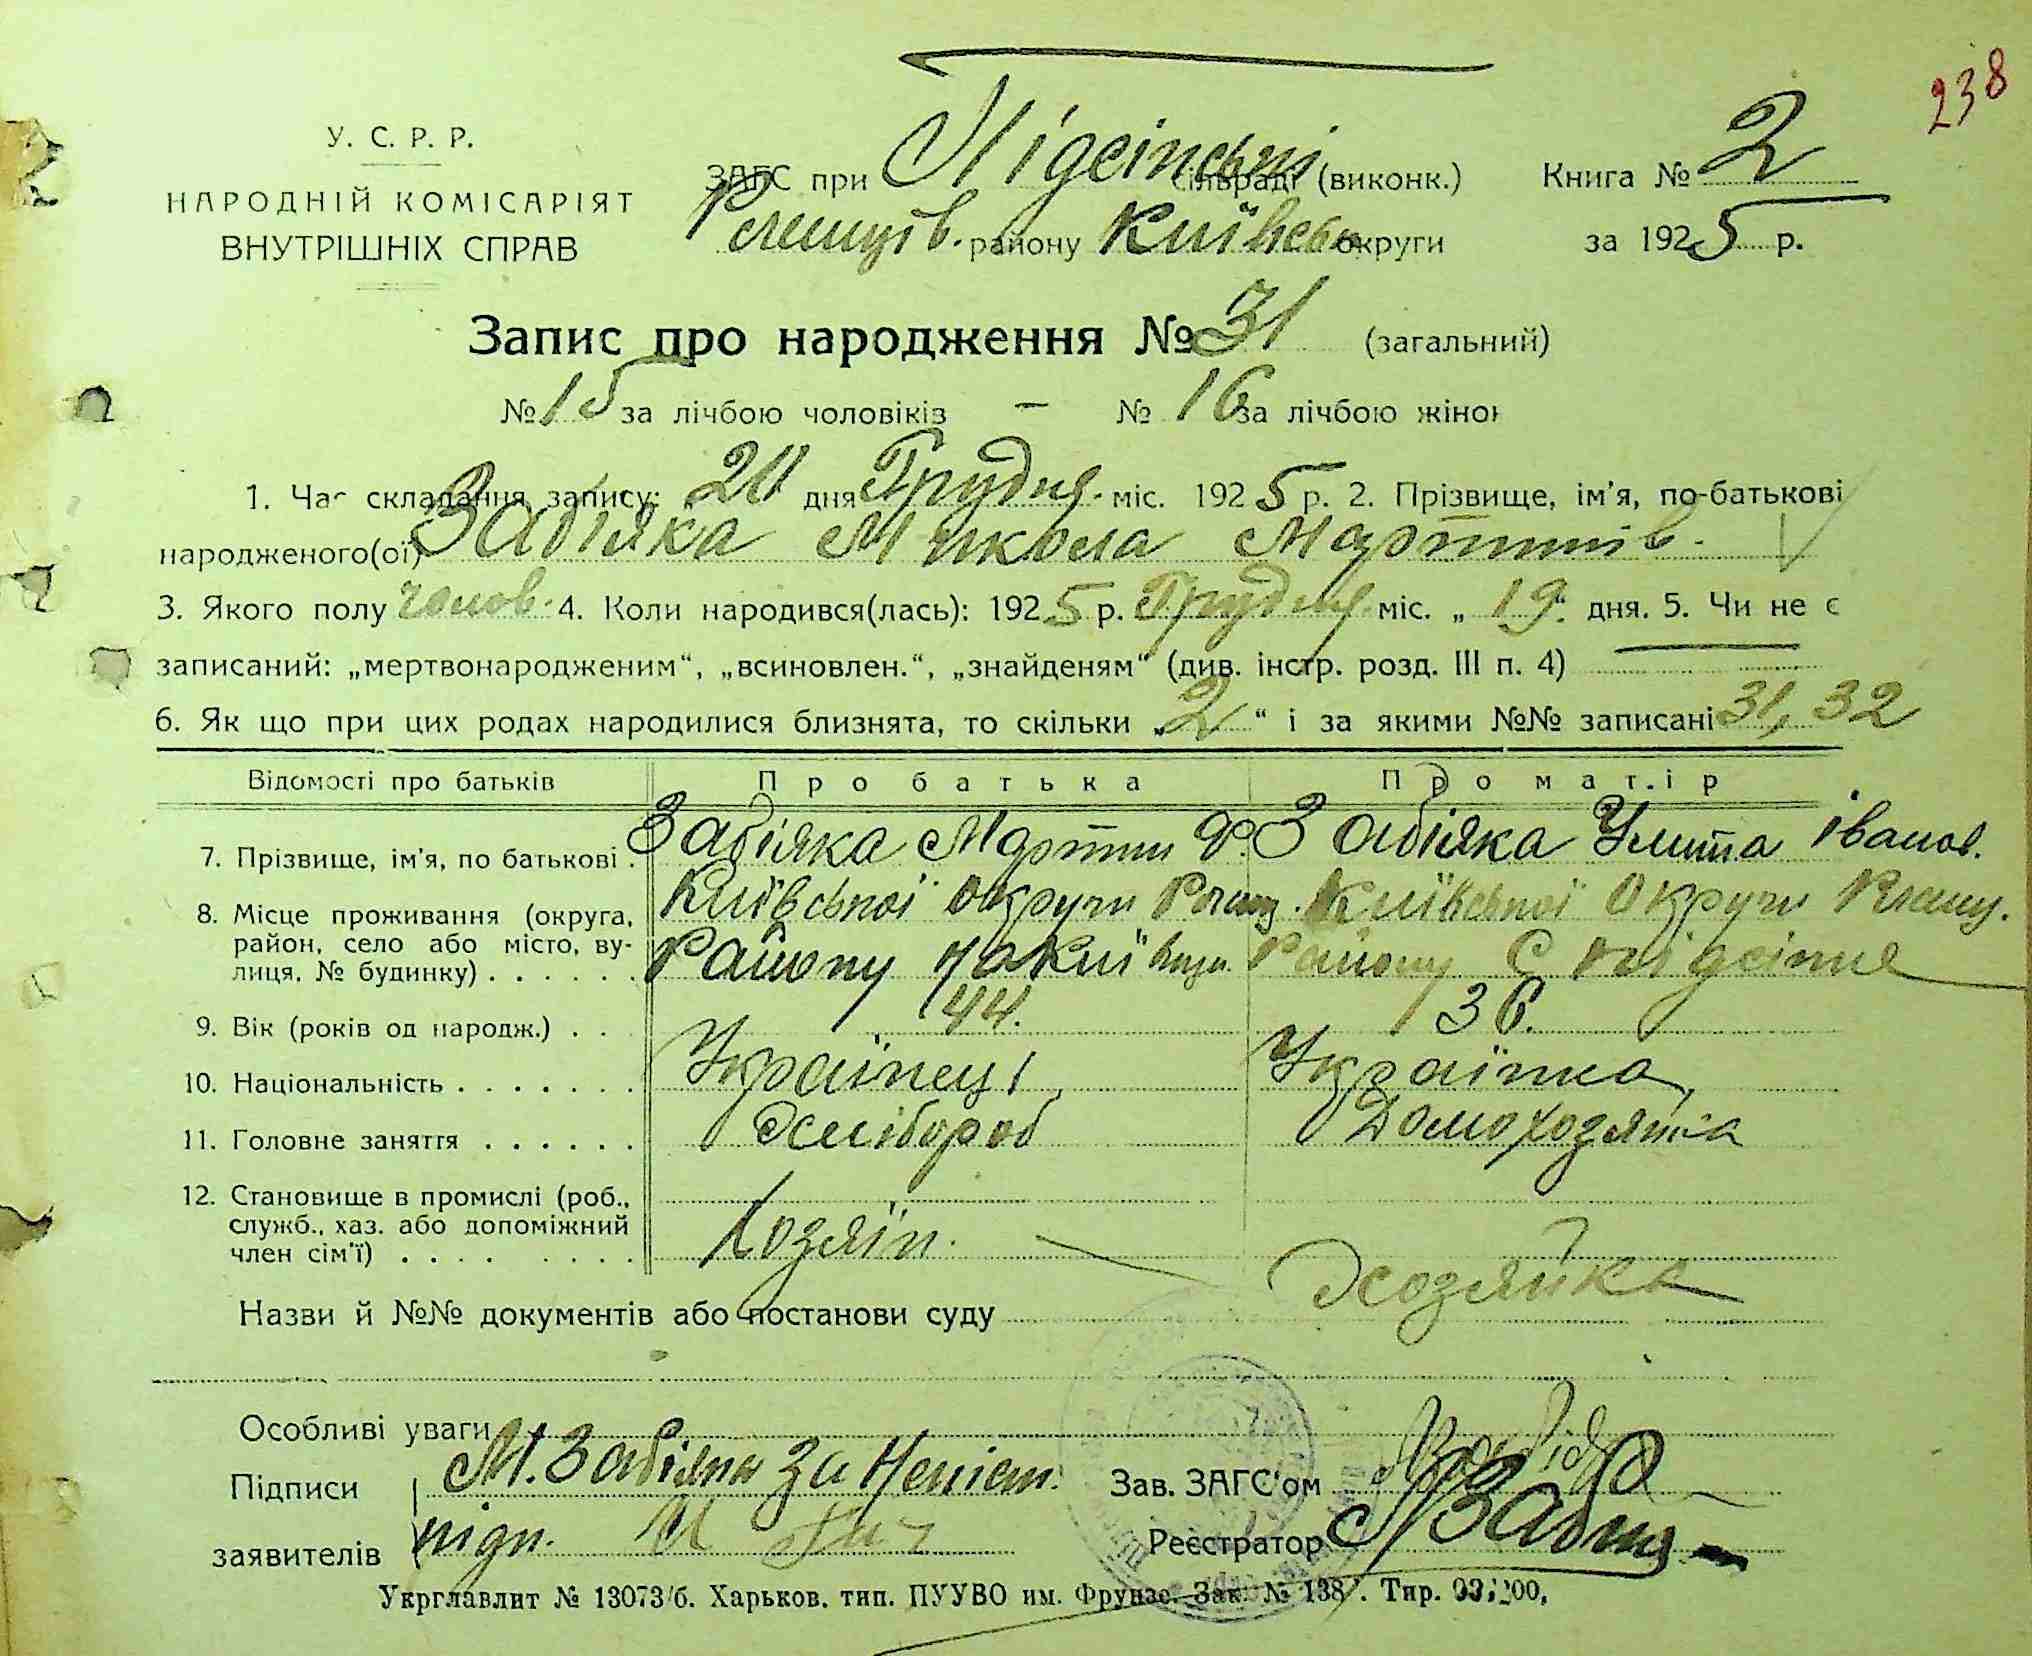 238
У. С. Р. Р.
НАРОДНІЙ КОМІСАРІЯТ
ВНУТРІШНІХ СПРАВ
ЗАГС при Підсінські Сільраді (виконк.)
району Київськ округи
Книга № 2
за 1925 р.
Запис про народження № 31 (загальний)
№ 15 за лічбою чоловіків — № 16 за лічбою жінок
1. Час складання запису: дня Грудня міс. 1925 р. 2. Прізвище, ім'я, по-батькові
народженого(ої) Забіяка Микола Мартинів.
3. Якого полу чолов. 4. Коли народився(лась): 1925 р. Грудня міс. „19“ дня. 5. Чи не є
записаний: „мертвонародженим“, „всиновлен.“, „знайденям“ (див. інстр. розд. III п. 4)
6. Як що при цих родах народилися близнята, то скільки „2“ і за якими №№ записані 31, 32
Відомості про батьків Про батька Про матір
7. Прізвище, ім'я, по батькові . Забіяка Мартин Забіяка Улита Іванов.
8. Місце проживання (округа, Київської Округи Київської Округи
район, село або місто, ву- Району Району С
лиця, № будинку) . . . . . .
9. Вік (років од народж.) . . 44. 36.
10. Національність . . . . . . . Українець Українка
11. Головне заняття . . . . . . Хлібороб Домохозяйка
12. Становище в промислі (роб.,
служб., хаз. або допоміжний Хозяїн.
член сім'ї) . . . . . . . . Хозяйка
Назви й №№ документів або постанови суду
Особливі уваги
Підписи М. Забіяка за Неписм. Зав. ЗАГС'ом
заявителів підп. Реєстратор
Укрглавлит № 13073/б. Харьков. тип. ПУУВО им. Фрунзе. Зак. № 138